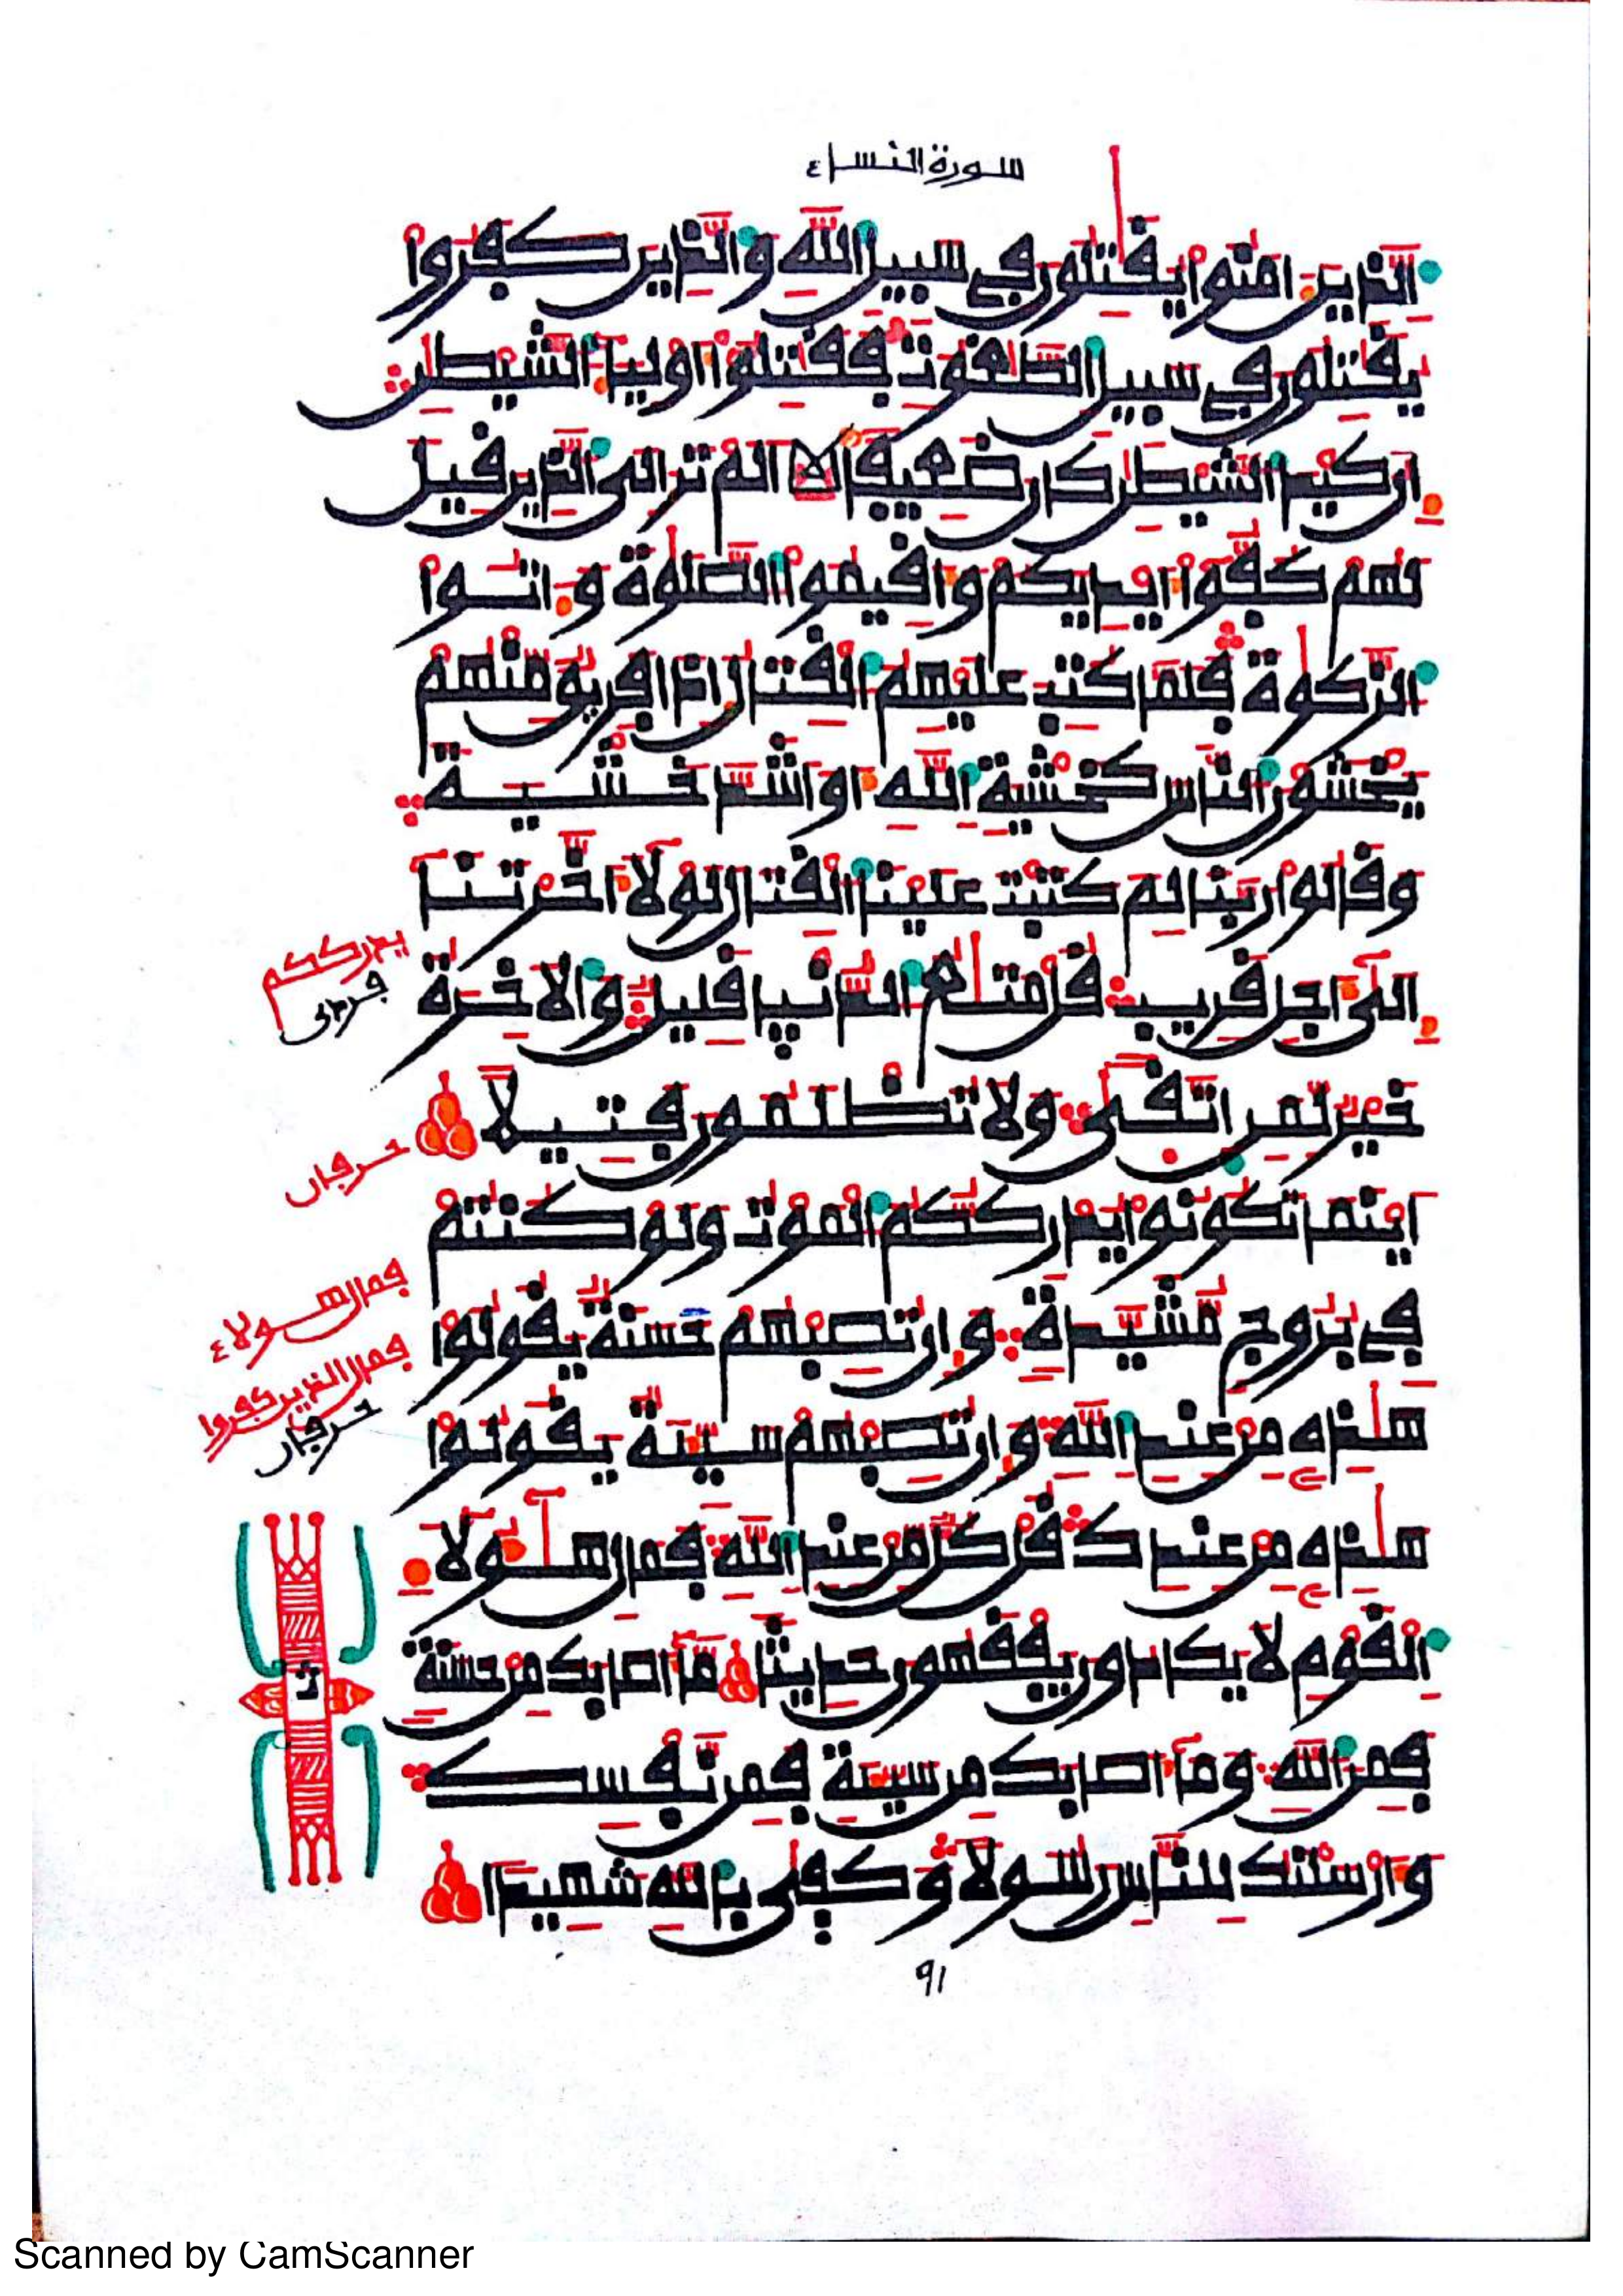 سورة النساء
الذين ءامنوا يقتلون في سبيل الله والذين كفروا
يقتلون في سبيل الطغوت فقتلوا أولياء الشيطن
إن كيد الشيطن كان ضعيفا الم تر الى الذين قيل
لهم كفوا أيديكم وأقيموا الصلوة وءاتوا
الزكوة فلما كتب عليهم القتال اذا فريق منهم
يخشون الناس كخشية الله او اشد خشية
وقالوا ربنا لم كتبت علينا القتال لولا أخرتنا
إلى أجل قريب قل متع الدنيا قليل والاخرة
خير لمن اتقى ولا تظلمون فتيلا
اينما تكونوا يدرككم الموت ولو كنتم
في بروج مشيدة وإن تصبهم حسنة يقولوا
هذه من عند الله وإن تصبهم سيئة يقولوا
هذه من عندك قل كل من عند الله فمال هؤلاء
القوم لا يكادون يفقهون حديثا ما اصابك من حسنة
فمن الله وما أصابك من سيئة فمن نفسك
وأرسلنك للناس رسولا وكفى بالله شهيدا
يدرككم
حرفان
فمال هولاء
فمال الذين كفروا
حرفان
٩١
Scanned by CamScanner